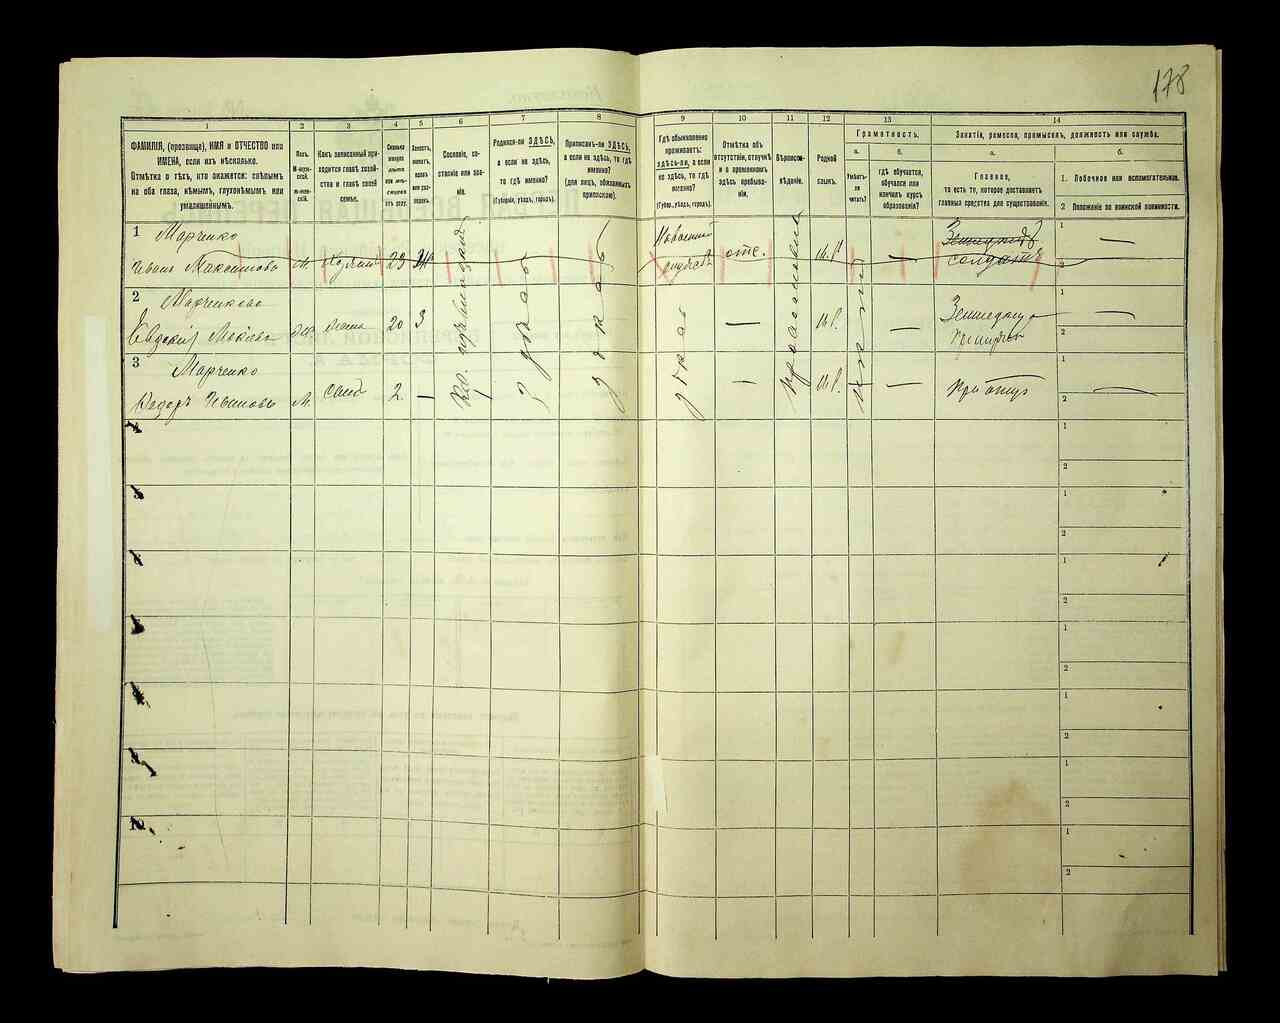 178
1 2 3 4 5 6 7 8 9 10 11 12 13 14
ФАМИЛІЯ, (прозвище), ИМЯ и ОТЧЕСТВО или
ИМЕНА, если ихъ нѣсколько.
Отмѣтка о тѣхъ, кто окажется: слѣпымъ
на оба глаза, нѣмымъ, глухонѣмымъ или
умалишеннымъ.
Полъ.
М-муж-
ской.
Ж-жен-
скій.
Какъ записанный при-
ходится главѣ хозяй-
ства и главѣ своей
семьи.
Сколько
минуло
лѣтъ
или мѣ-
сяцевъ
отъ роду.
Сословіе, со-
стояніе или зва-
ніе.
Родился-ли ЗДѢСЬ,
а если не здѣсь,
то гдѣ именно?
(Губернія, уѣздъ, городъ).
Приписанъ-ли ЗДѢСЬ,
а если не здѣсь, то гдѣ
именно?
(для лицъ, обязанныхъ
припискою).
Гдѣ обыкновенно
проживаетъ:
здѣсь-ли, а если
не здѣсь, то гдѣ
именно?
(Губер., уѣздъ, городъ).
Отмѣтка объ
отсутствіи, отлучкѣ
и о временномъ
здѣсь пребыва-
ніи.
Вѣроиспо-
вѣданіе.
Родной
языкъ.
Грамотность.
а.
Умѣетъ-
ли
читать?
б.
гдѣ обучается,
обучался или
кончилъ курсъ
образованія?
Занятія, ремесло, промыселъ, должность или служба.
а.
Главное,
то есть то, которое доставляетъ
главныя средства для существованія.
б.
1. Побочное или вспомогательное.
2 Положеніе по воинской повинности.
1 Марченко
Иванъ Максимовъ м. Хозяинъ 23 отс. м.р. — Земледѣл.
солдатъ
1 —
2
2 Марченкова
Евдокія ж. жена 20 3 — м.р. — Земледѣлица
1 —
2
3 Марченко
Федоръ Ивановъ м. сынъ 2 — — м.р. — при отцу
1
2 —
здѣсь
здѣсь
здѣсь
православный
4 1
2
5 1
2
6 1
2
7 1
2
8 1
2
9 1
2
10 1
2